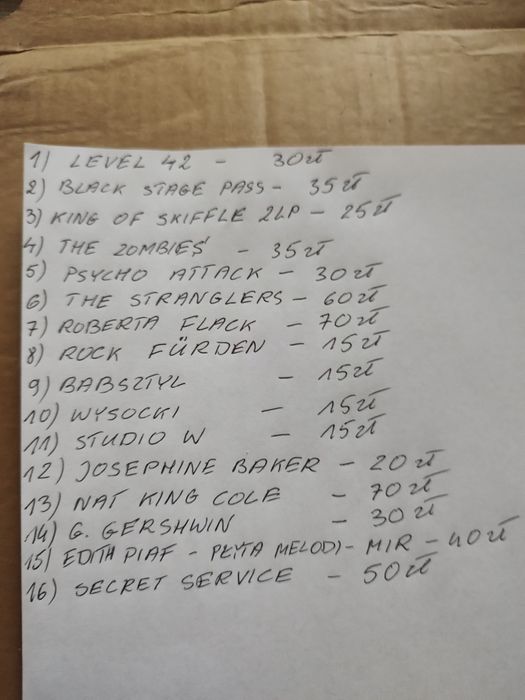 1) LEVEL 42 - 30 zł
2) BLACK STAGE PASS - 35 zł
3) KING OF SKIFFLE 2LP - 25 zł
4) THE ZOMBIES - 35 zł
5) PSYCHO ATTACK - 30 zł
6) THE STRANGLERS - 60 zł
7) ROBERTA FLACK - 70 zł
8) ROCK FÜRDEN - 15 zł
9) BABSZTYL - 15 zł
10) WYSOCKI - 15 zł
11) STUDIO W - 15 zł
12) JOSEPHINE BAKER - 20 zł
13) NAT KING COLE - 70 zł
14) G. GERSHWIN - 30 zł
15) EDITH PIAF - PŁYTA MELODI - MIR - 40 zł
16) SECRET SERVICE - 50 zł